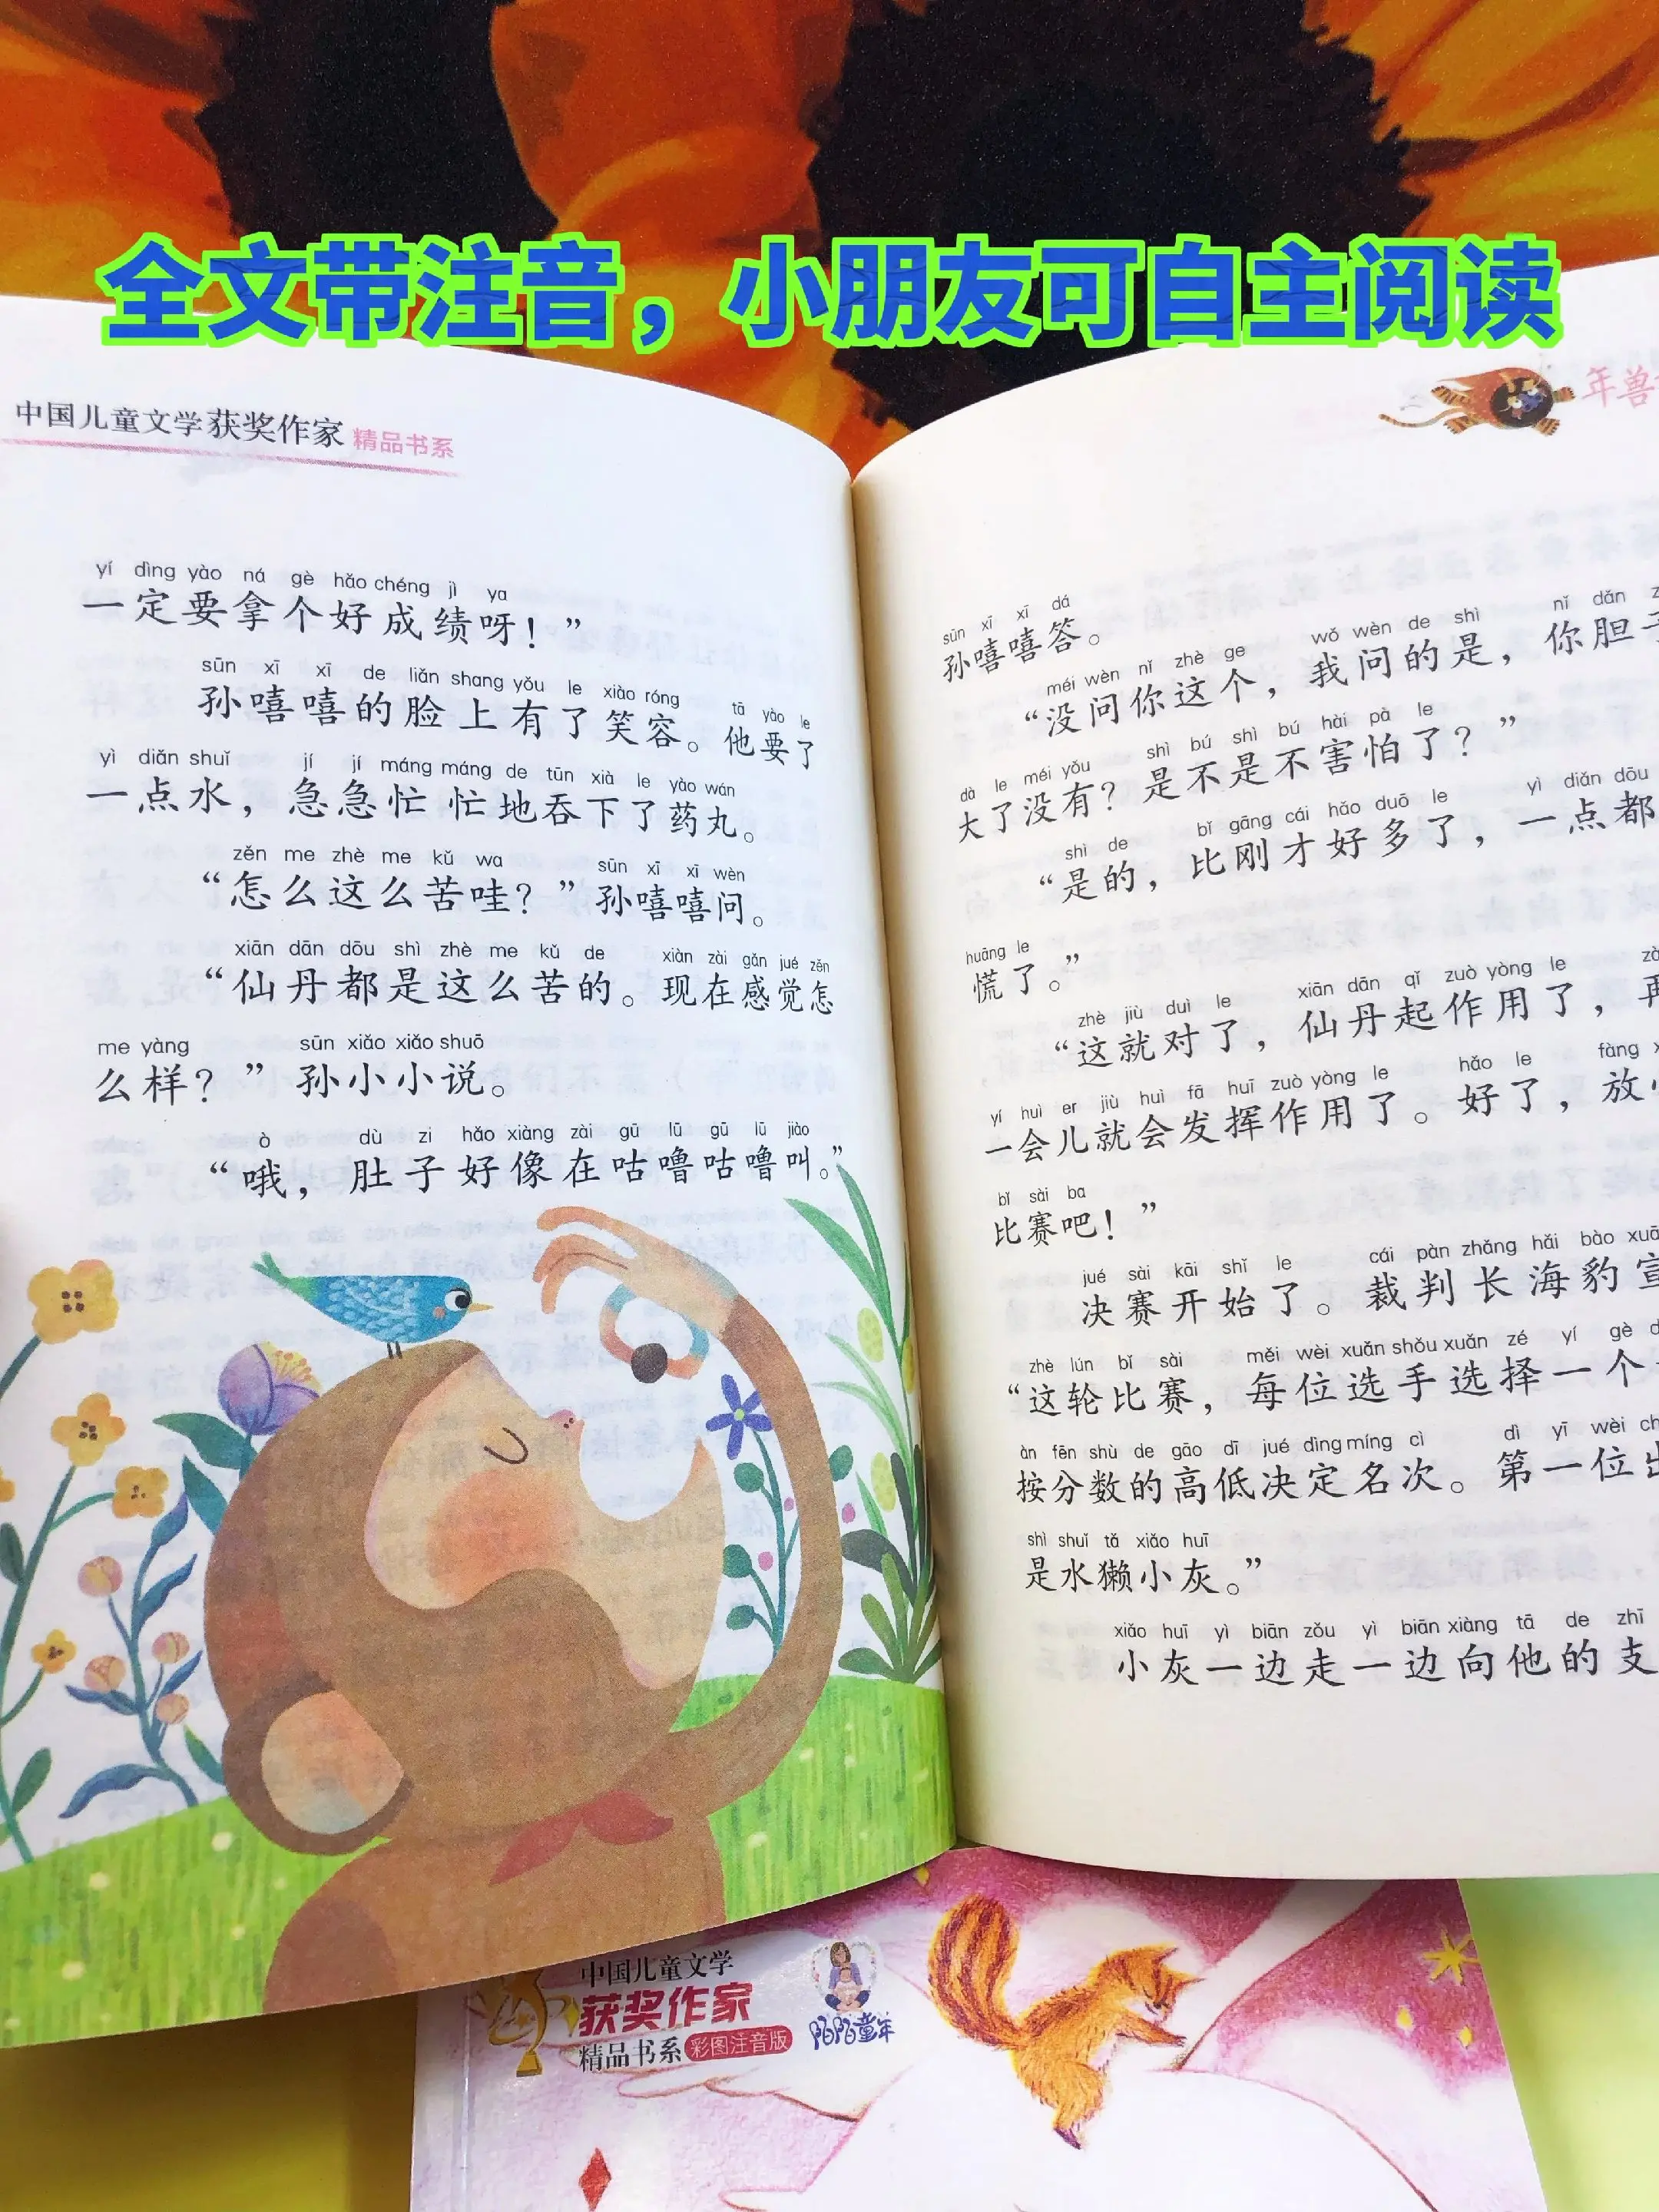 全文带注音，小朋友可自主阅读
中国儿童文学获奖作家 精品书系
yí dìng yào ná gè hǎo chéng jì ya
一定要拿个好成绩呀！”
sūn xī xī de liǎn shang yǒu le xiào róng tā yào le
孙嘻嘻的脸上有了笑容。他要了
yì diǎn shuǐ jí jí máng máng de tūn xià le yào wán
一点水，急急忙忙地吞下了药丸。
zěn me zhè me kǔ wa sūn xī xī wèn
“怎么这么苦哇？”孙嘻嘻问。
xiān dān dōu shì zhè me kǔ de xiàn zài gǎn jué zěn
“仙丹都是这么苦的。现在感觉怎
me yàng sūn xiǎo xiǎo shuō
么样？”孙小小说。
ò dù zi hǎo xiàng zài gū lū gū lū jiào
“哦，肚子好像在咕噜咕噜叫。”
年兽
sūn xī xī dá
孙嘻嘻答。
méi wèn nǐ zhè ge wǒ wèn de shì nǐ dǎn
“没问你这个，我问的是，你胆子
dà le méi yǒu shì bú shì bú hài pà le
大了没有？是不是不害怕了？”
shì de bǐ gāng cái hǎo duō le yì diǎn dōu
“是的，比刚才好多了，一点都
huāng le
慌了。”
zhè jiù duì le xiān dān qǐ zuò yòng le
“这就对了，仙丹起作用了，再
yí huì er jiù huì fā huī zuò yòng le hǎo le fàng
一会儿就会发挥作用了。好了，放
bǐ sài ba
比赛吧！”
jué sài kāi shǐ le cái pàn zhǎng hǎi bào xuān
决赛开始了。裁判长海豹宣
zhè lún bǐ sài měi wèi xuǎn shǒu xuǎn zé yí gè
“这轮比赛，每位选手选择一个
àn fēn shù de gāo dī jué dìng míng cì dì yī wèi
按分数的高低决定名次。第一位出
shì shuǐ tǎ xiǎo huī
是水獭小灰。”
xiǎo huī yì biān zǒu yì biān xiàng tā de zhī
小灰一边走一边向他的支
中国儿童文学
获奖作家
精品书系 彩图注音版
陌陌童年